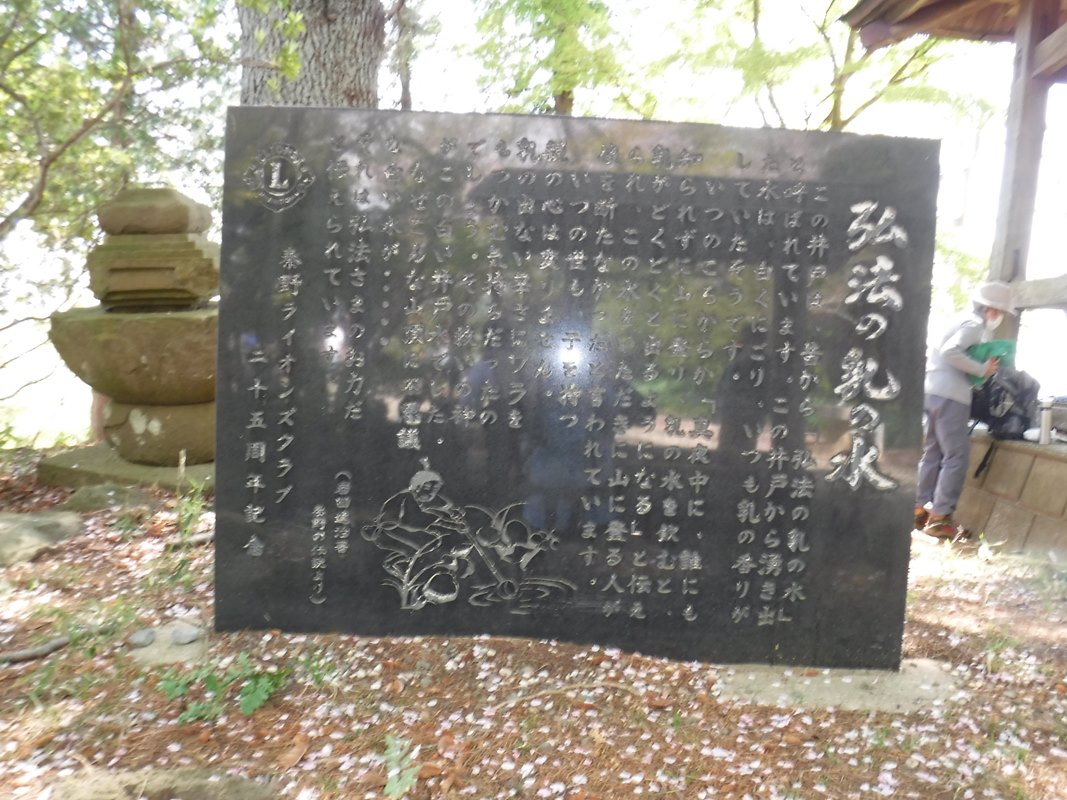 弘法の乳の水
この井戸は、昔から「弘法の乳の水」
と呼ばれています。この井戸から湧き出
た水は、白くにごり、いつも乳の香りが
していたそうです。
いつのころからか、「真夜中に、誰にも
知られずに山に登り、乳の水を飲むと、
乳がどくどくと出るようになる」と伝え
られ、この水をいただきに山に登る人が
後を断たなかったと言われています。
いつの世も、子を持つ
親の心は変りません。
乳の出ない辛さにワラを
もつかむ気持ちだったの
でしょう。その
がこの白い井戸水でした。
なぜこんな山頂に不思議
な白い水が・・・・・
それは弘法さまのお力だ
と伝えられています。
(岩田達治著
秦野の伝説より)
秦野ライオンズクラブ
二十五周年記念
L